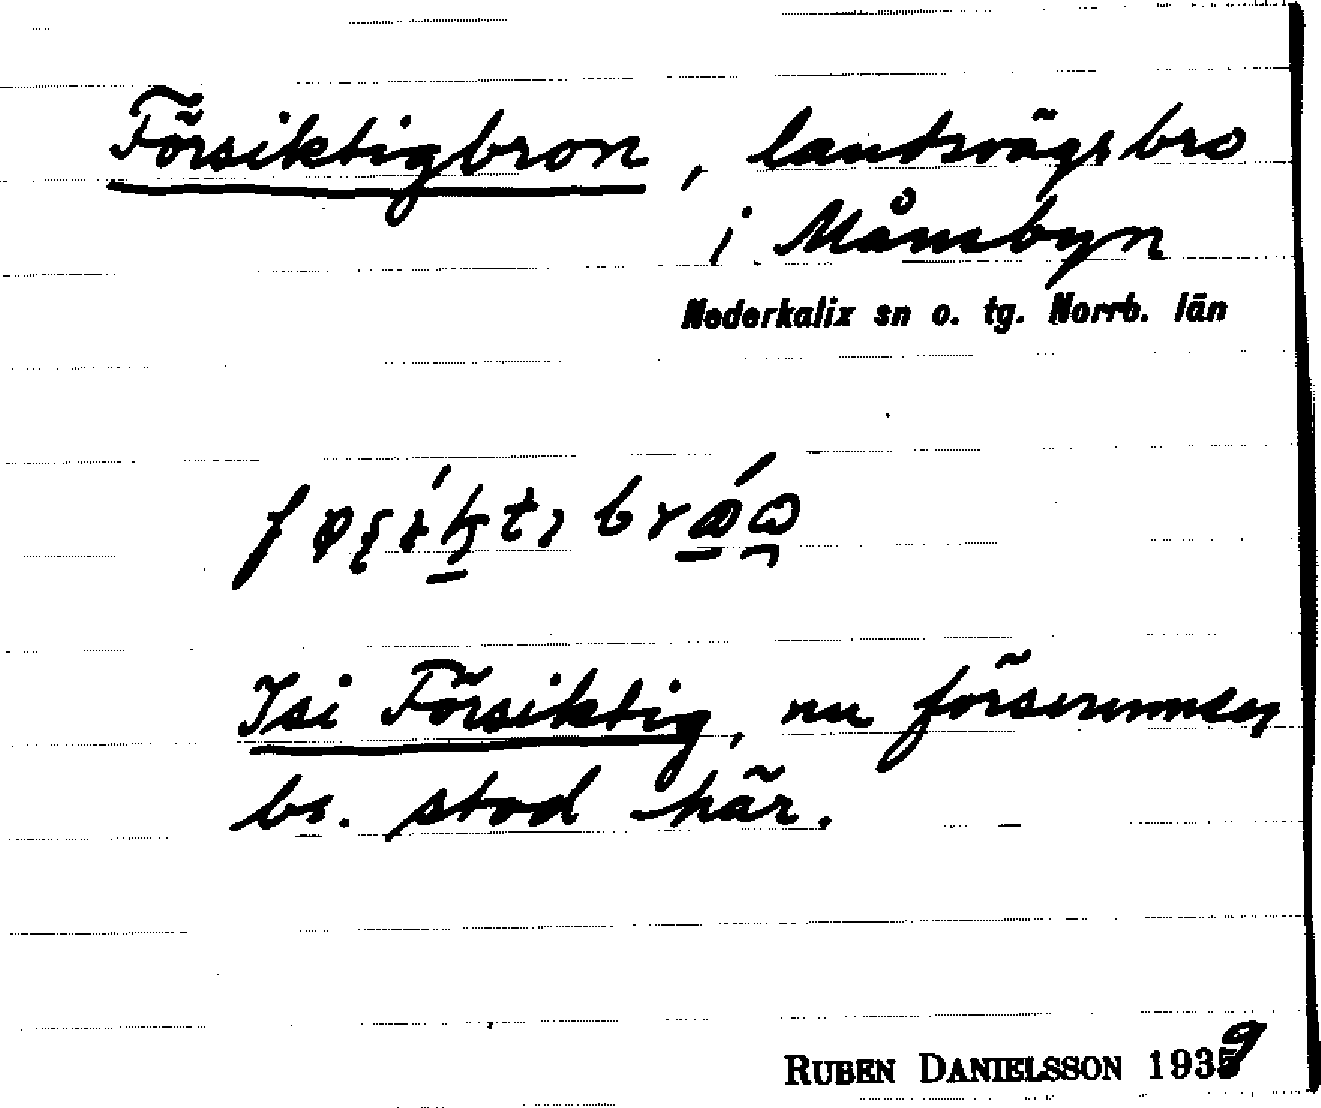 Försiktigbron, landsvägsbro
i Månsbyn
Nederkalix sn o. tg. Norrb. län
Isi Försiktig, nu försvunnen
by. stod här.
RUBEN DANIELSSON 1939